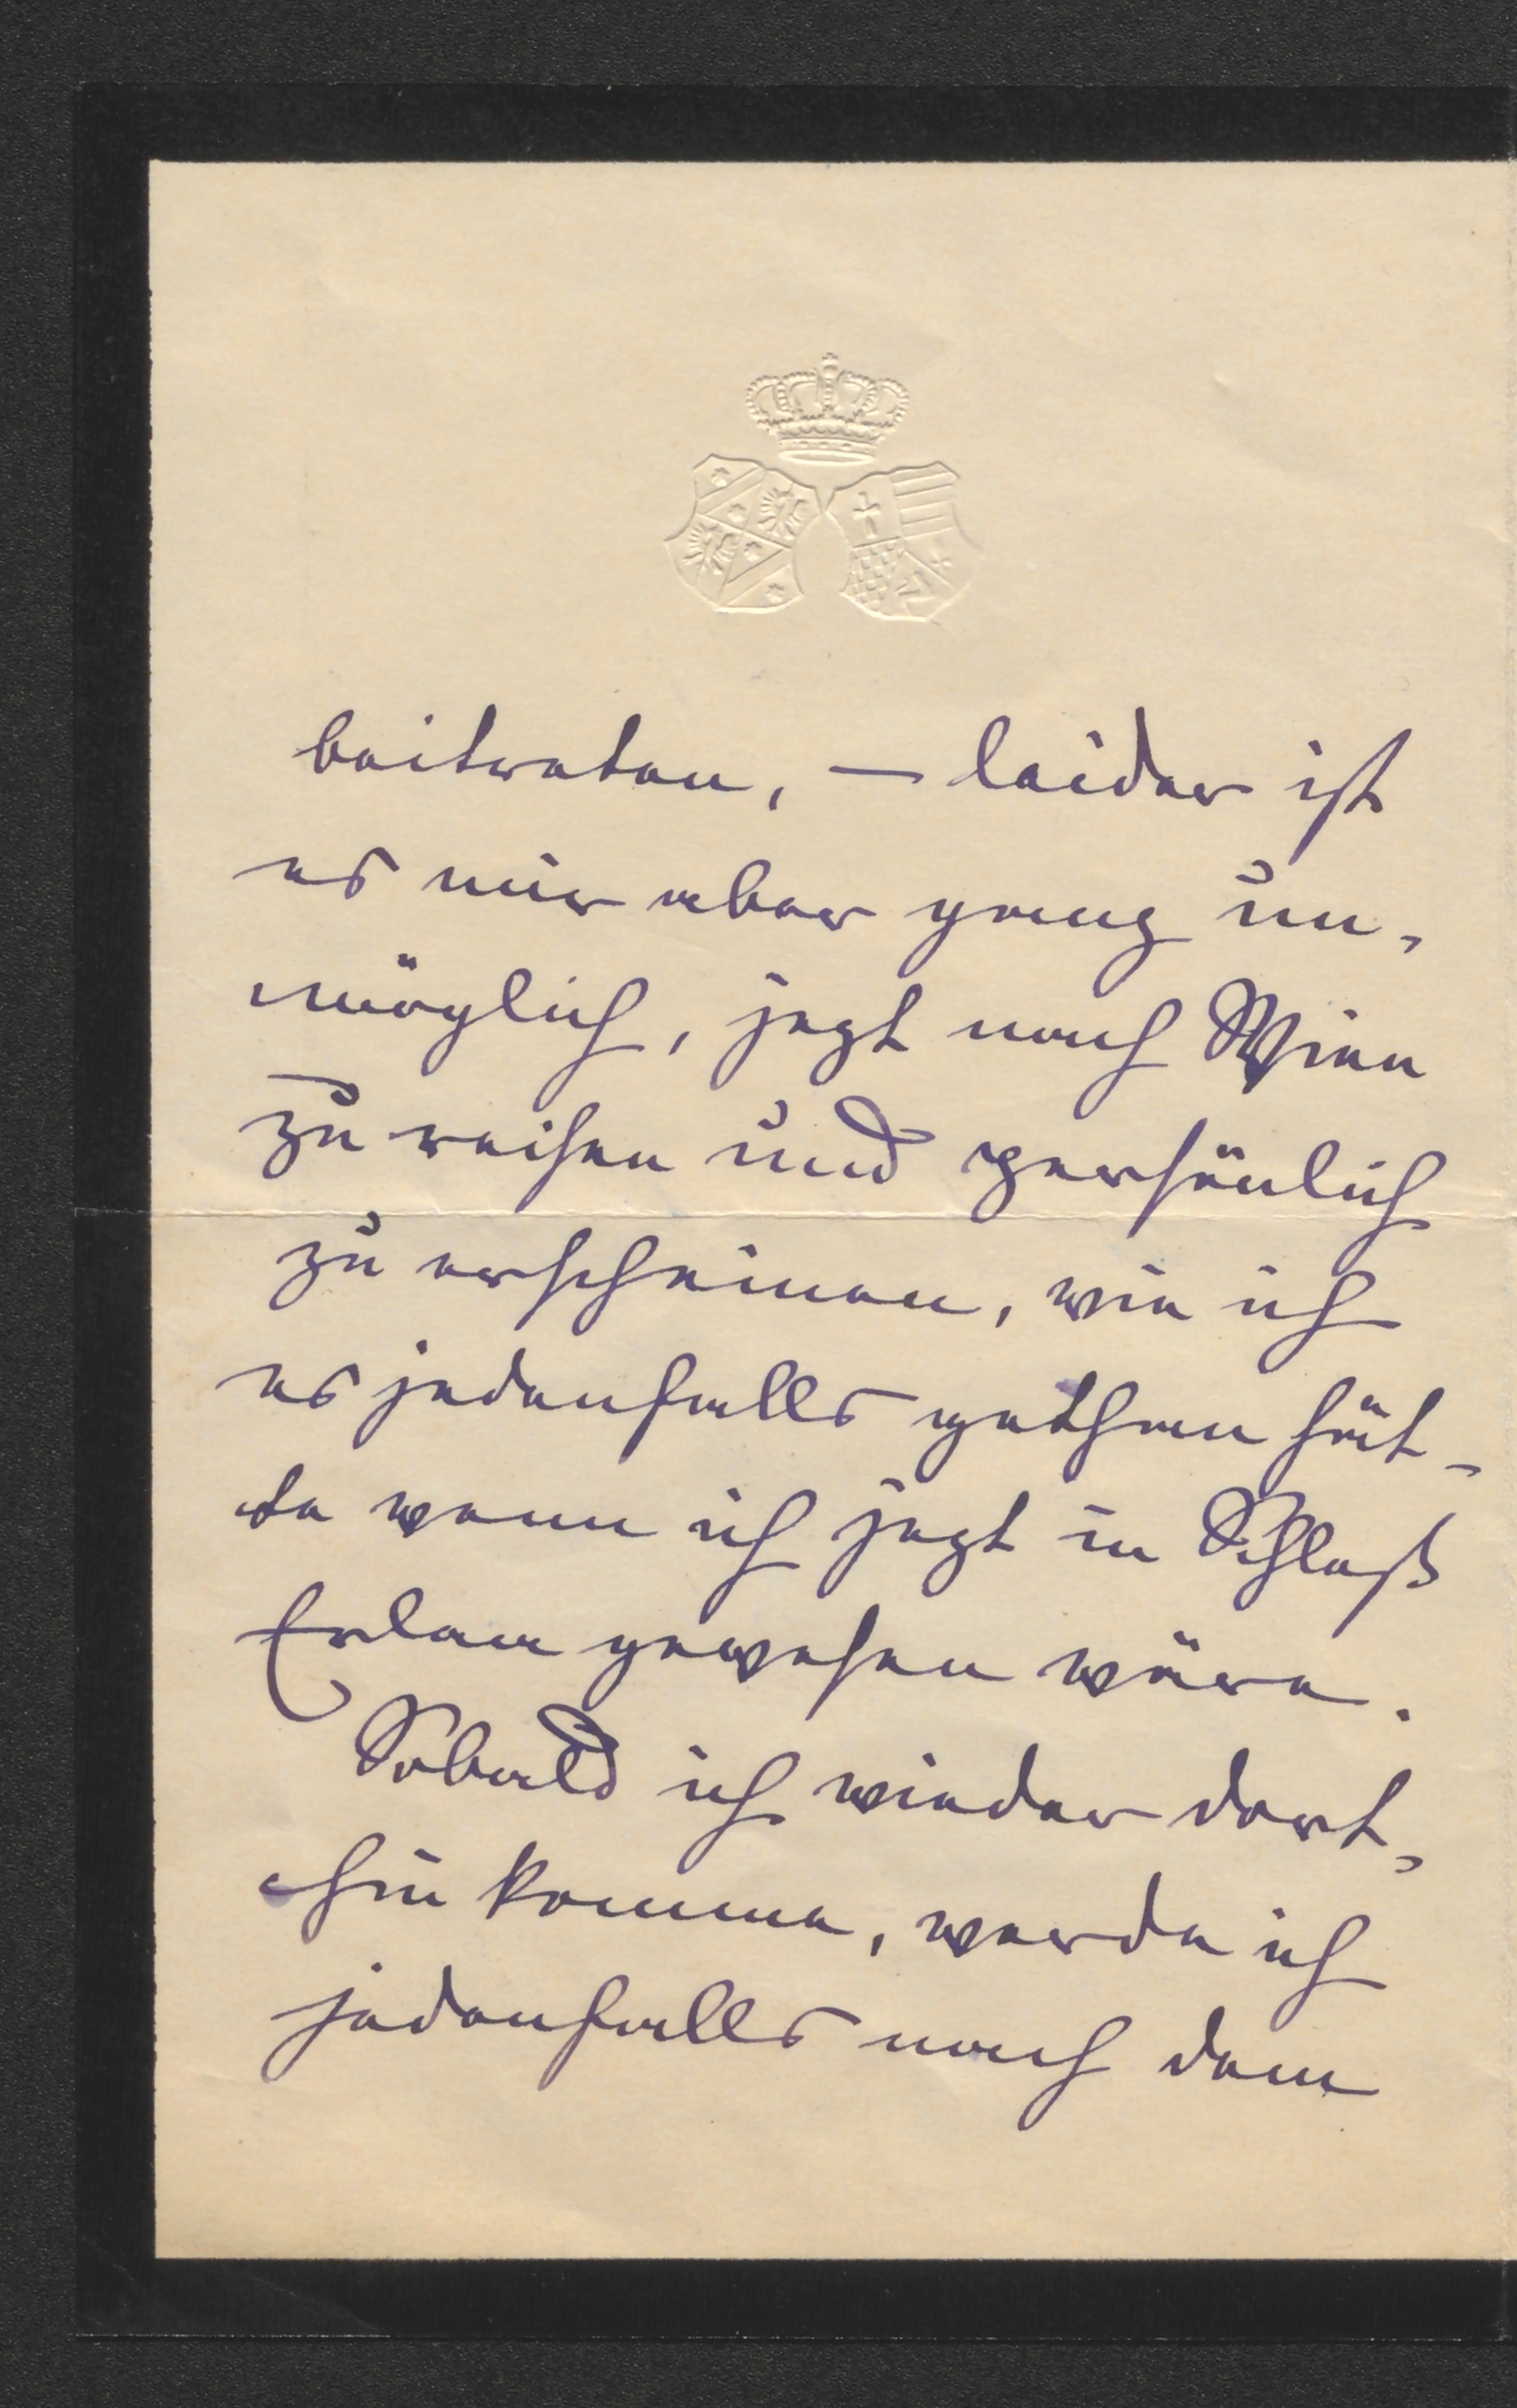 beitreten, — leider ist
es mir aber ganz un-
möglich, jetzt nach Wien
zu reisen und persönlich
zu erscheinen, wie ich
es jedenfalls gethan hät-
te wenn ich jetzt in Schloß
Erlaa gewesen wäre.
Sobald ich wieder dort-
hin komme, werde ich
jedenfalls nach dem